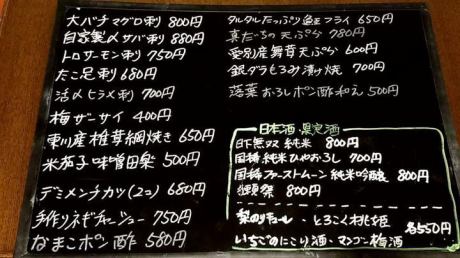 大バチマグロ刺 800円
自家製〆サバ刺 880円
トロサーモン刺 750円
たこ足刺 680円
活〆ヒラメ刺 700円
梅ザーサイ 400円
東川産椎茸網焼き 650円
米茄子味噌田楽 500円
デミメンチカツ(2コ) 680円
手作りネギチャーシュー 750円
なまこポン酢 580円
タルタルたっぷり鮭フライ 650円
真だちの天ぷら 780円
愛別産舞茸天ぷら 600円
銀ダラもろみ漬け焼 700円
落葉おろしポン酢和え 500円
日本酒 限定酒
日下無双 純米 800円
国稀 純米ひやおろし 700円
国稀ファーストムーン純米吟醸 800円
獺祭 800円
梨のリキュール・とろこく桃姫
各550円
いちごのにごり酒・マンゴー梅酒